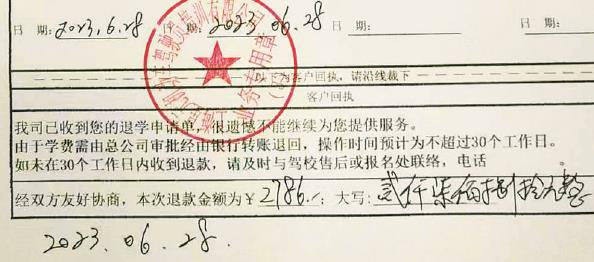 日 期: 2023.6.28 日 期: 2023.06.28
驾驶员培训有限公司
业务专用章
以下为客户回执,请沿线裁下
客户回执
我司已收到您的退学申请单,很遗憾不能继续为您提供服务。
由于学费需由总公司审批经由银行转账退回,操作时间预计为不超过30个工作日。
如未在30个工作日内收到退款,请及时与驾校售后或报名处联络,电话 。
经双方友好协商,本次退款金额为¥2786./ 大写: 贰仟柒佰捌拾 整
2023.06.28.